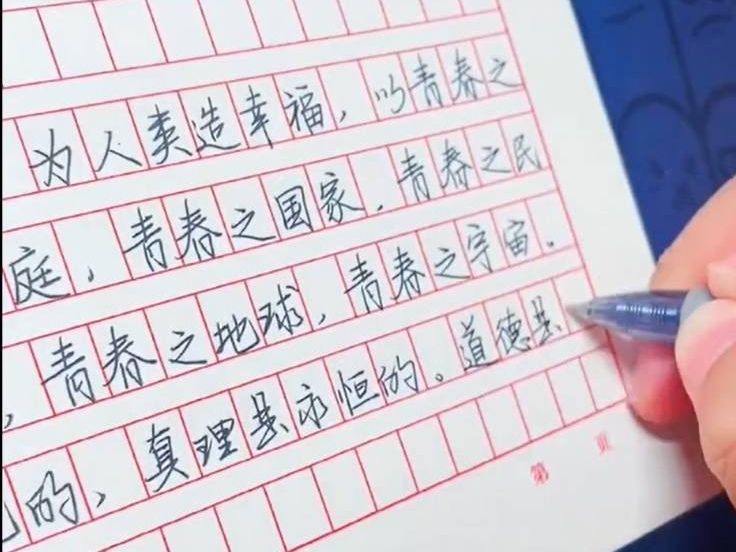 为人类造幸福，以青春之
庭，青春之国家，青春之民
，青春之地球，青春之宇宙。
的，真理是永恒的。道德是
第 页